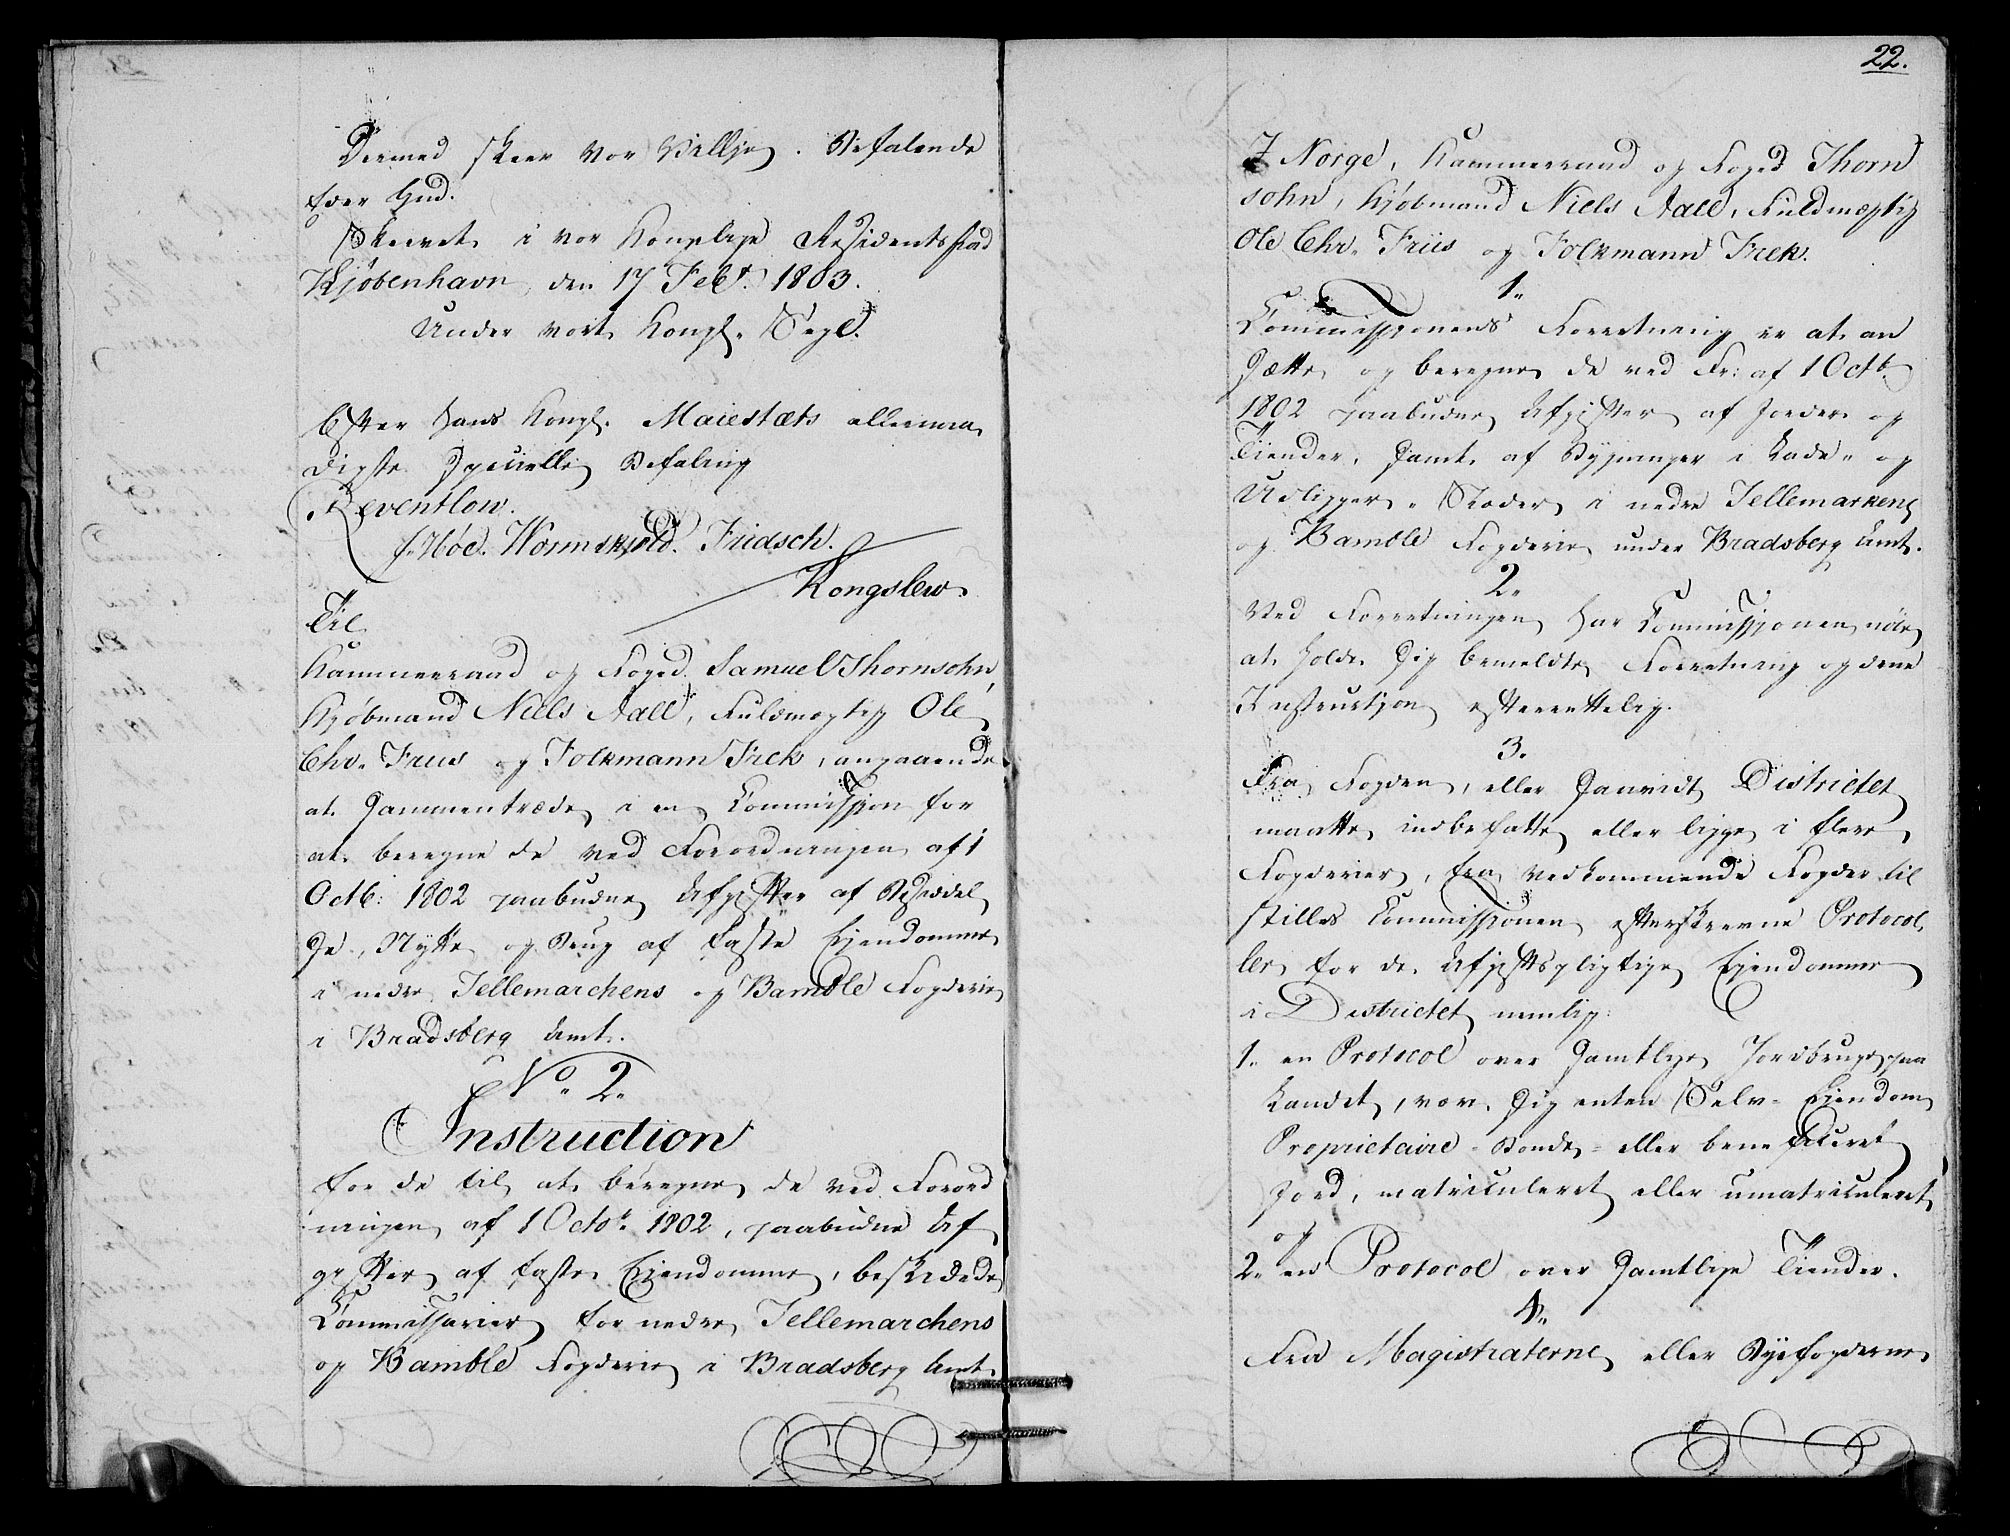 Dermed skeer Vor Villje. Befalende
Eder Gud.
Skrevet i vor Kongelige Residentsstad
Kjøbenhavn, den 17 Febr. 1803.
Under vort Kongl. Segl.
Efter Hans Kongl. Maiestæts allernaa
digste Specielle Befaling
Reventlow.
Wormskjold. Fridsch.
Kongslew.
Til
Kammerraad og Foged Samuel Thornsohn,
Kjøbmand Niels Aall, Fuldmægtig Ole
Chr. Friis og Folkmann Frek, angaaende
at Sammentræde i en Commission for
at beregne de ved Forordningen af 1
Octb: 1802 paabudne Afgifter af Besiddel
se, Nytte og Brug af faste Ejendomme
i nedre Tellemarchens og Bamble Fogderie
i Bradsberg Amt.
No. 2.
Instruction
for de til at beregne de ved Forord
ningen af 1 Octbr. 1802, paabudne Af
gifter af faste Ejendomme, beskikkede
Commissarier for nedre Tellemarchens
og Bamble Fogderie i Bradsberg Amt
22.
I Norge, Kammerraad og Foged Thorn
sohn, Kjøbmand Niels Aall, Fuldmægtig
Ole Chr. Friis og Folkmann Frek.
1.
Commissionens Forretning er at an
sætte og beregne de ved Fr: af 1 Octb.
1802 paabudne Afgifter af Jorder og
Tiender, samt af Bygninger i Lade- og
Udligger-Stæder i nedre Tellemarkens
og Bamble Fogderie under Bradsberg Amt.
2.
Ved Forretningen har Commissionen nøie
at holde sig bemeldte Forretning og denne
Instruction efterrettelig.
3.
Fra Fogden, eller saavidt Districtet
maatte indbefatte eller ligge i flere
Fogderier, fra vedkommende Fogder til
stilles Commissionen efterskrevne Protocol
ler for de Afgiftspligtige Ejendomme
i Districtet nemlig:
1. en Protocol over samtlige Jordbruge paa
Landet, vær sig enten Selv-Eiendom
Proprietaire- Bonde- eller beneficeret
Jord, matriculeret eller umatriculeret,
og
2. en Protocol over samtlige Tiender.
4.
Fra Magistraterne eller Byefogderne